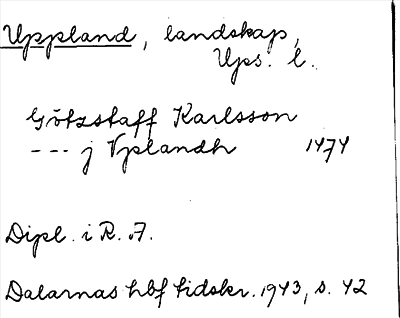 Uppland, landskap,
Ups. l.
Götzstaff Karlsson
--- j Vplandh 1474
Dipl. i R.A.
Dalarnas hbf tidskr. 1943, s. 42